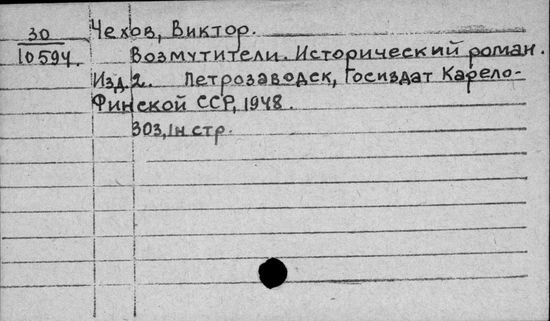 30
10594.
Чехов, Виктор.
Возмутители. Исторический роман.
Изд. 2. Петрозаводск, Госиздат Карело-
Финской ССР, 1948.
303, 1н стр.